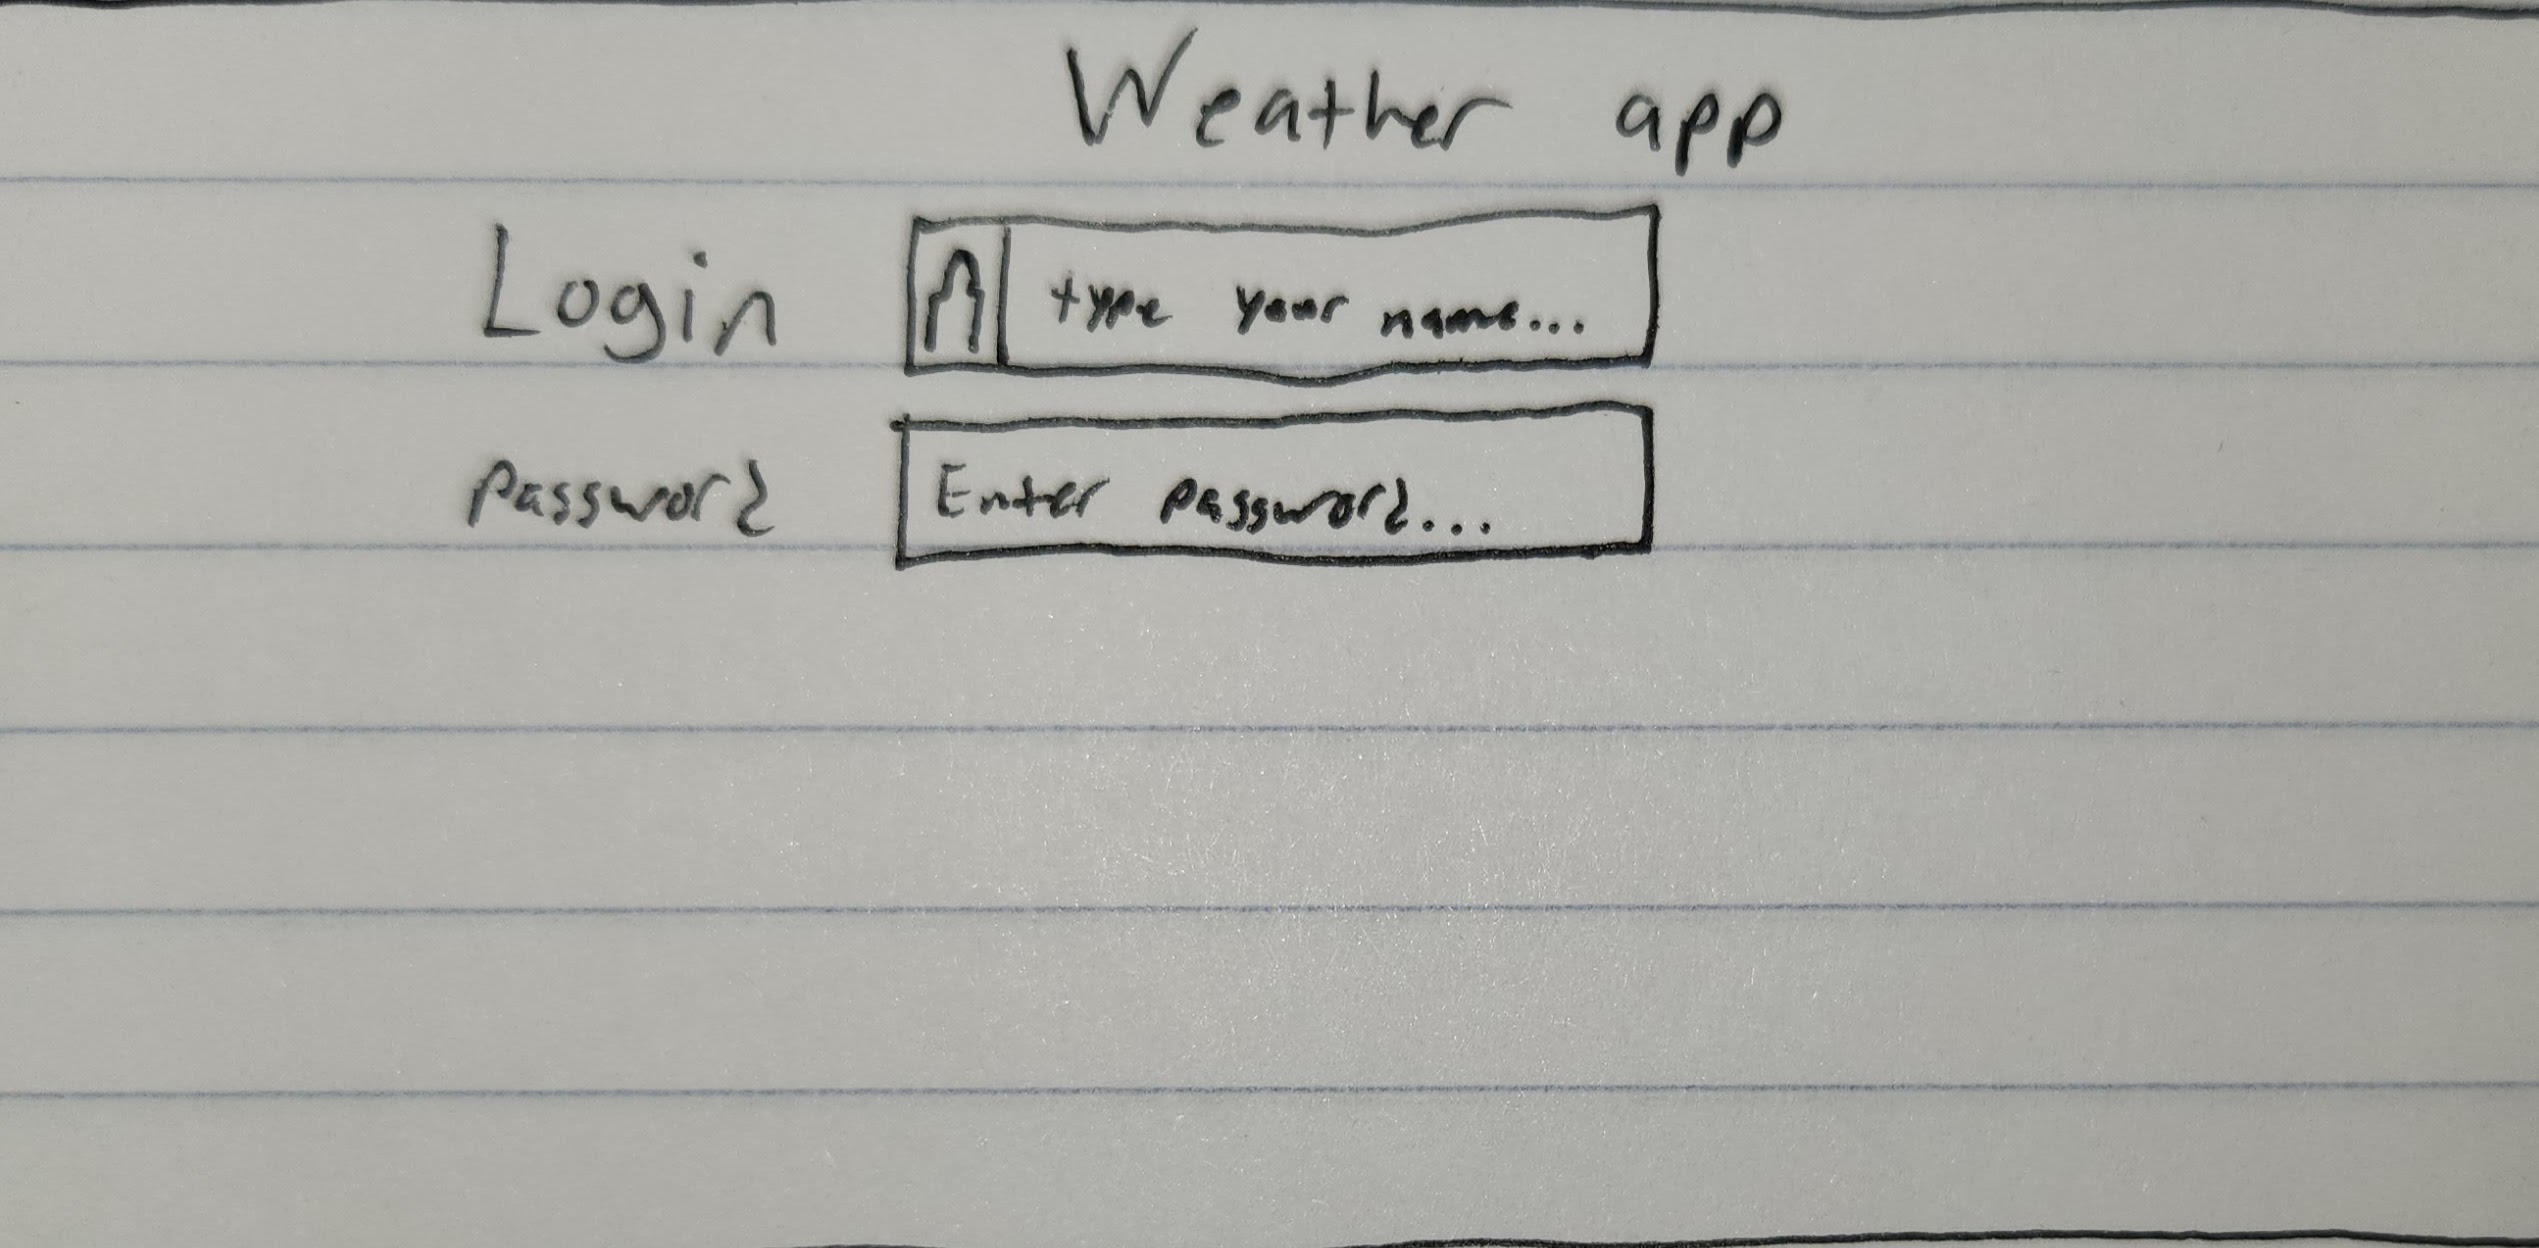 Weather app
Login
type your name...
Password
Enter password...